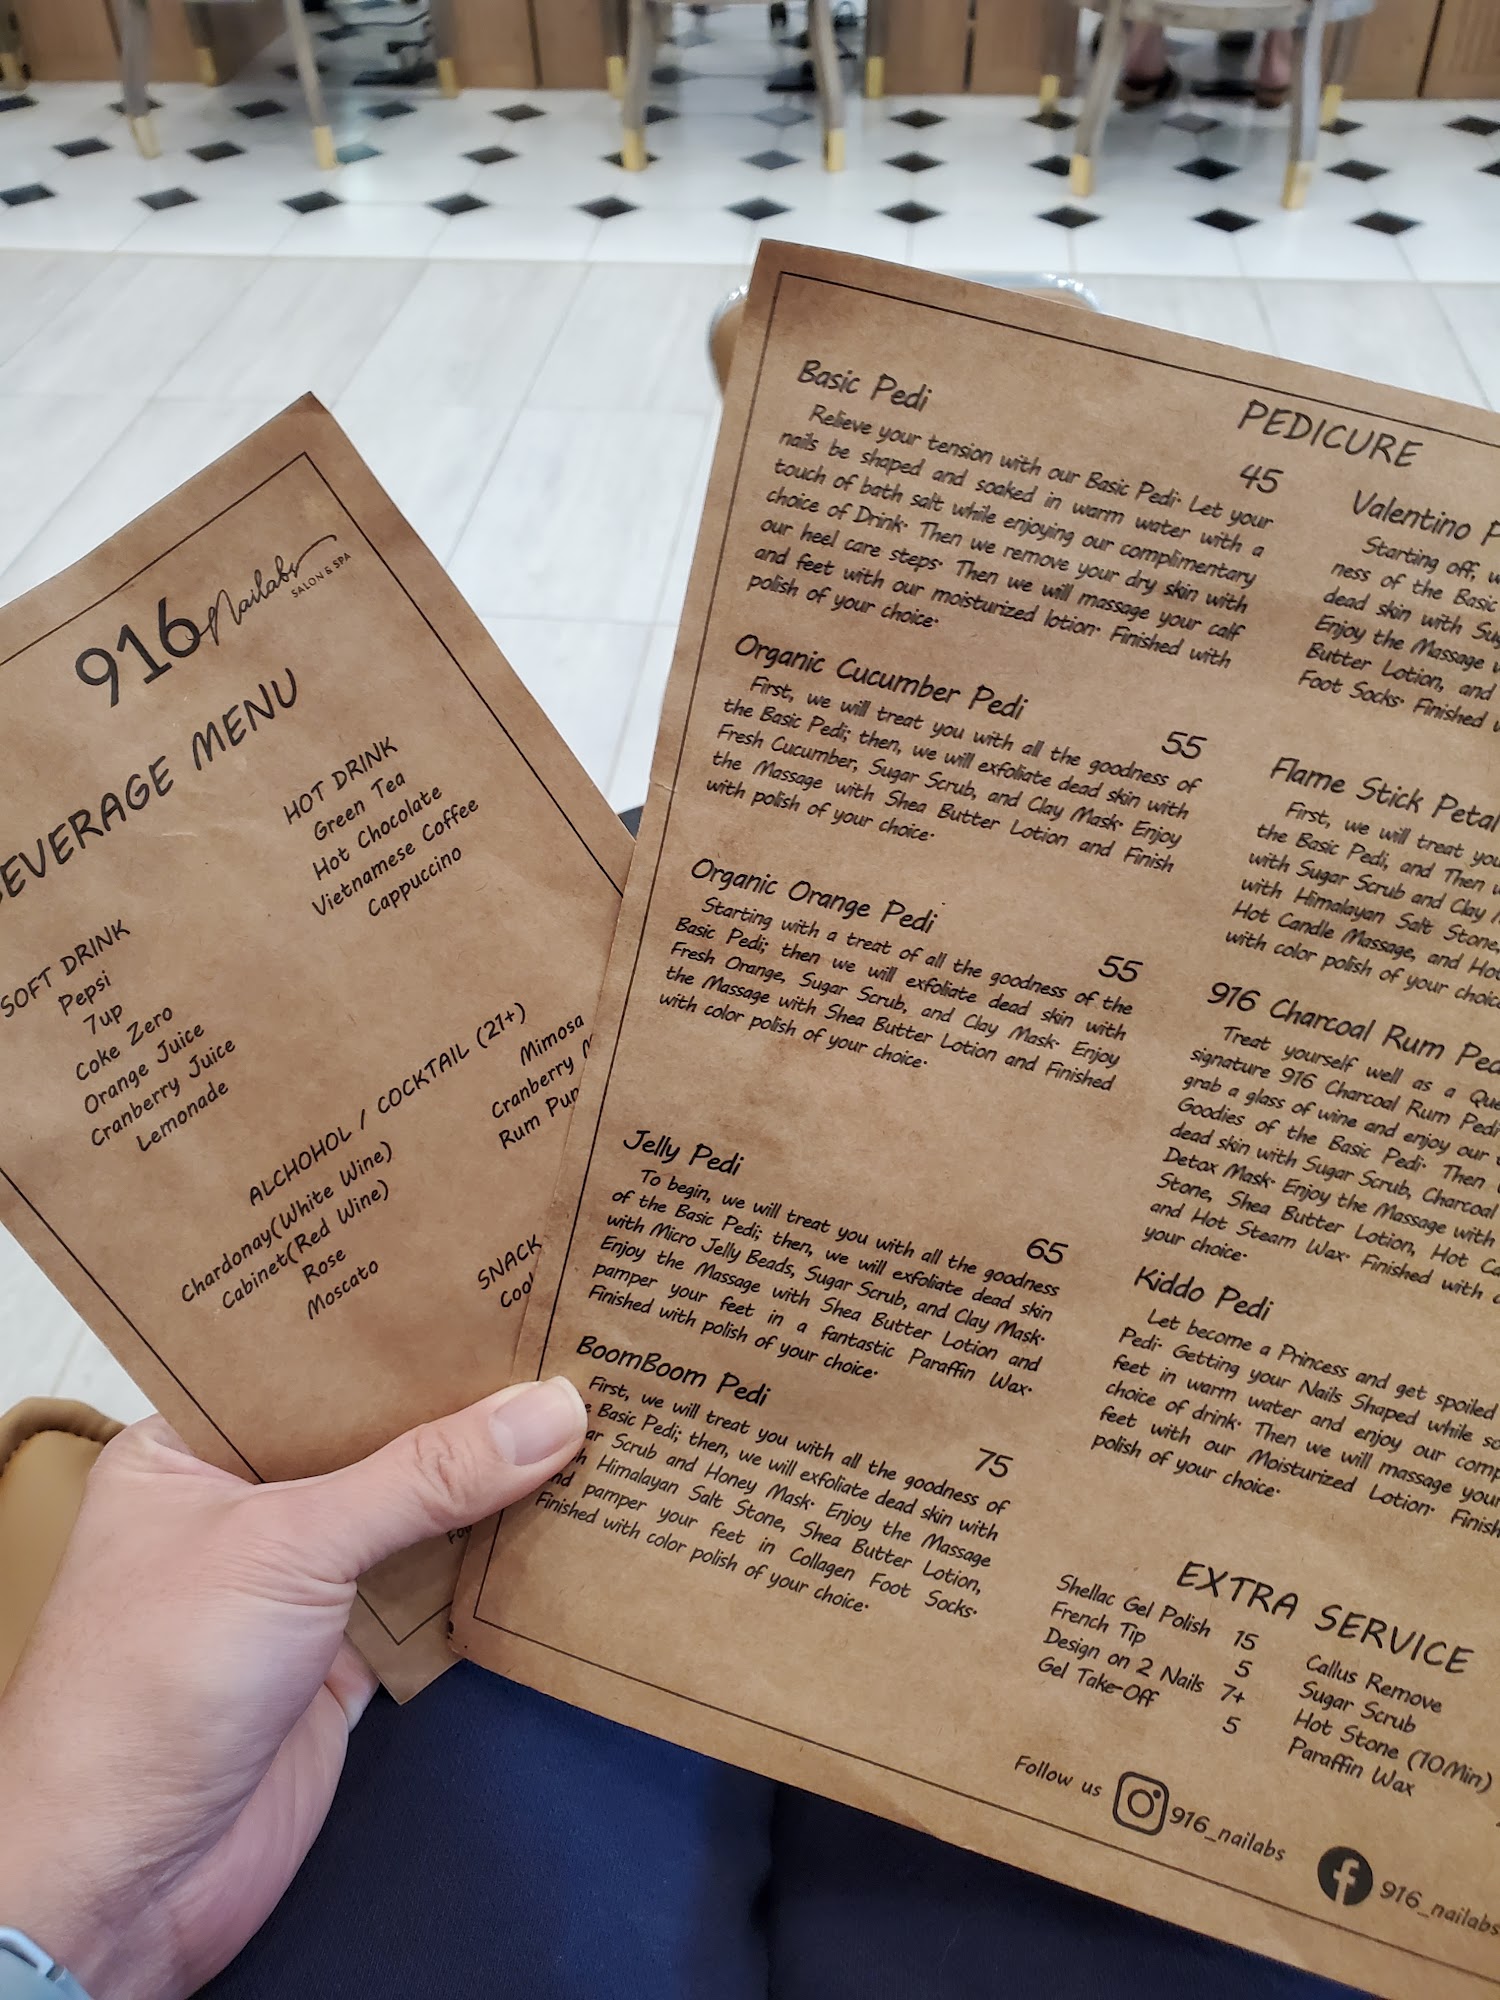 916 Nailabs
SALON & SPA
BEVERAGE MENU
HOT DRINK
Green Tea
Hot Chocolate
Vietnamese Coffee
Cappuccino
SOFT DRINK
Pepsi
7up
Coke Zero
Orange Juice
Cranberry Juice
Lemonade
ALCHOHOL / COCKTAIL (21+)
Chardonay(White Wine)
Cabinet(Red Wine)
Rose
Moscato
Mimosa
Cranberry M
Rum Pun
SNACK
Coo
PEDICURE
Basic Pedi
45
Relieve your tension with our Basic Pedi. Let your
nails be shaped and soaked in warm water with a
touch of bath salt while enjoying our complimentary
choice of Drink. Then we remove your dry skin with
our heel care steps. Then we will massage your calf
and feet with our moisturized lotion. Finished with
polish of your choice.
Organic Cucumber Pedi
55
First, we will treat you with all the goodness of
the Basic Pedi; then, we will exfoliate dead skin with
Fresh Cucumber, Sugar Scrub, and Clay Mask. Enjoy
the Massage with Shea Butter Lotion and Finish
with polish of your choice.
Organic Orange Pedi
55
Starting with a treat of all the goodness of the
Basic Pedi; then we will exfoliate dead skin with
Fresh Orange, Sugar Scrub, and Clay Mask. Enjoy
the Massage with Shea Butter Lotion and Finished
with color polish of your choice.
Jelly Pedi
65
To begin, we will treat you with all the goodness
of the Basic Pedi; then, we will exfoliate dead skin
with Micro Jelly Beads, Sugar Scrub, and Clay Mask.
Enjoy the Massage with Shea Butter Lotion and
pamper your feet in a fantastic Paraffin Wax.
Finished with polish of your choice.
BoomBoom Pedi
75
First, we will treat you with all the goodness of
e Basic Pedi; then, we will exfoliate dead skin with
ar Scrub and Honey Mask. Enjoy the Massage
h Himalayan Salt Stone, Shea Butter Lotion,
nd pamper your feet in Collagen Foot Socks.
Finished with color polish of your choice.
Valentino P
Starting off, w
ness of the Basic
dead skin with Sug
Enjoy the Massage w
Butter Lotion, and
Foot Socks. Finished w
Flame Stick Petal
First, we will treat you
the Basic Pedi, and Then w
with Sugar Scrub and Clay M
with Himalayan Salt Stone,
Hot Candle Massage, and Hot
with color polish of your choice
916 Charcoal Rum Ped
Treat yourself well as a Que
signature 916 Charcoal Rum Pedi
grab a glass of wine and enjoy our
Goodies of the Basic Pedi. Then
dead skin with Sugar Scrub, Charcoal
Detox Mask. Enjoy the Massage with
Stone, Shea Butter Lotion, Hot Ca
and Hot Steam Wax. Finished with
your choice.
Kiddo Pedi
Let become a Princess and get spoiled
Pedi. Getting your Nails Shaped while so
feet in warm water and enjoy our comp
choice of drink. Then we will massage your
feet with our Moisturized Lotion. Finish
polish of your choice.
EXTRA SERVICE
Shellac Gel Polish 15
French Tip 5
Design on 2 Nails 7+
Gel Take-Off 5
Callus Remove
Sugar Scrub
Hot Stone (10Min)
Paraffin Wax
Follow us 916_nailabs
916_nailabs